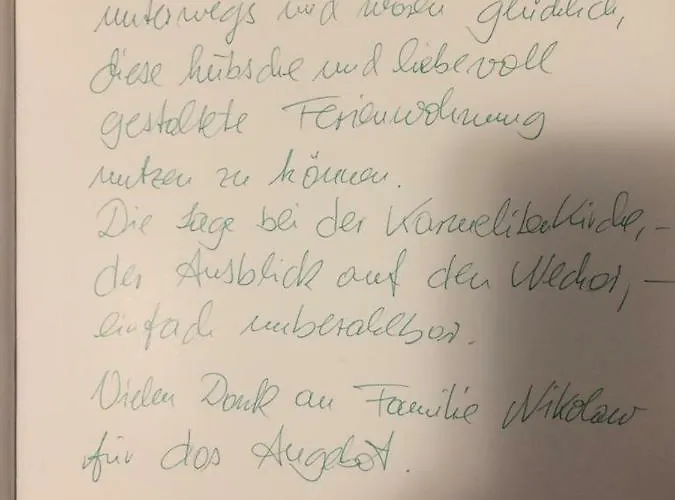 unterwegs und waren glücklich,
diese hübsche und liebevoll
gestaltete Ferienwohnung
nutzen zu können.
Die Lage bei der Karmelitenkirche, –
der Ausblick auf den Neckar, –
einfach unbezahlbar.
Vielen Dank an Familie Nikolaus
für das Angebot.